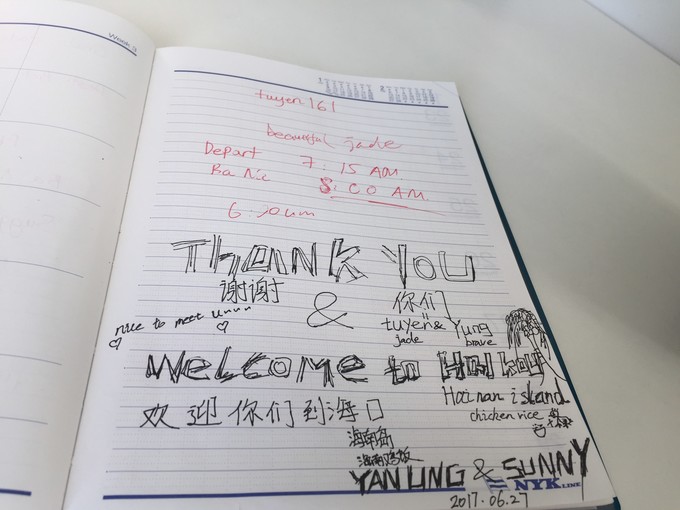 Week 3
tuyen 161
beautiful jade
Depart 7:15 AM
Ba Nic 8:00 AM
THANK YOU
谢谢 & 你们
nice to meet uuuu
tuyen & Yung
jade brave
Welcome to Haikou
Hainan island
chicken rice
欢迎你们到海口
海南岛
海南鸡饭
YANLING & SUNNY
NYK LINE
2017.06.27